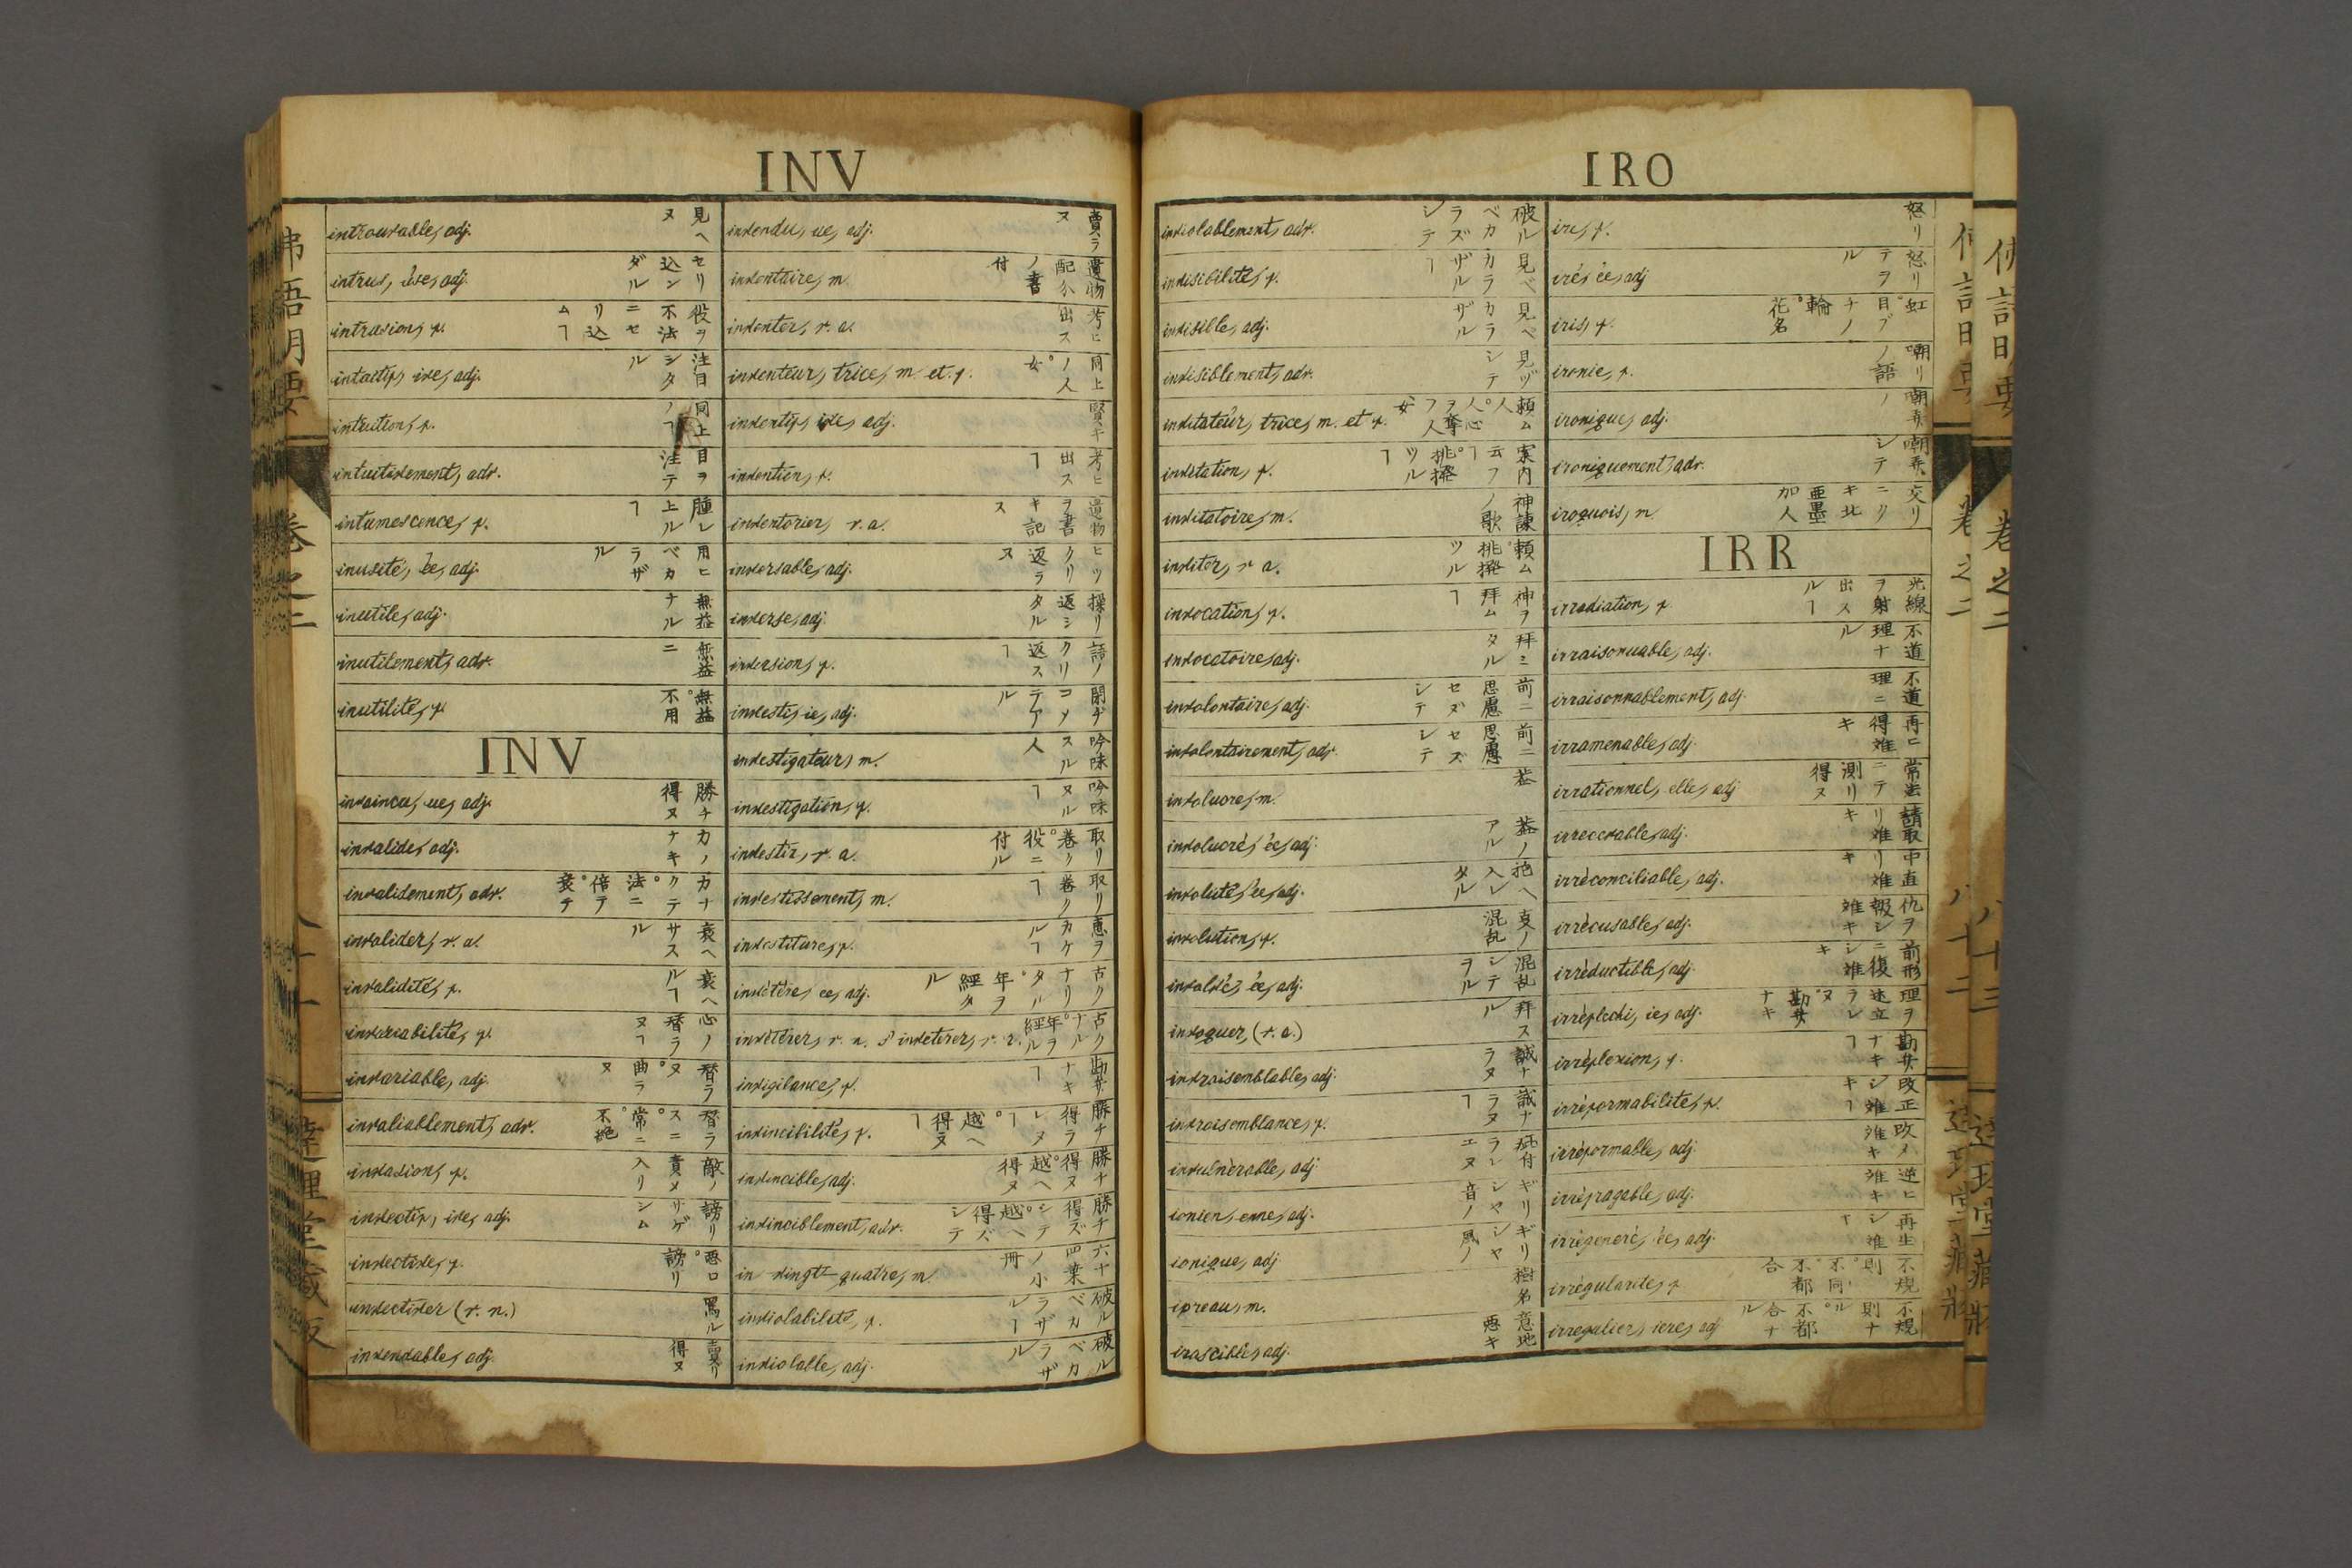 INV
introuvable, adj. 見ヘヌ
intrus, use, adj. セリ込ンダル
intrusion, f. 役ヲ不法ニセリ込ムヿ
intuitif, ive, adj. 注目シタル
intuition, f. 同上ノヿ
intuitivement, adv. 目ヲ注テ
intumescence, f. 腫レ上ルヿ
inusité, ée, adj. 用ヒベカラザル
inutile, adj. 無益ナル
inutilement, adv. 無益ニ
inutilité, f. 無益。不用
INV
invaincu, ue, adj. 勝チ得ヌ
invalide, adj. 力ノナキ
invalidement, adv. 力ナクテ。法ニ倍テ。衰テ
invalider, v. a. 衰ヘサスル
invalidité, f. 衰ヘルヿ
invariabilité, f. 心ノ替ラヌヿ
invariable, adj. 替ラヌ。曲ラヌ
invaliablement, adv. 替ラスニ。常ニ。不絶
invasion, f. 敵ノ責メ入リ
invectif, ive, adj. 謗リサゲシム
invective, f. 悪口。謗リ
invectiver (v. n.) 罵ル
invendable, adj. 賣リ得ヌ
invendu, ue, adj. 賣ラヌ
inventaire, m. 遺物配分ノ書付
inventer, v. a. 考ヒ出ス
inventeur, trice, m. et. f. 同上ノ人。女
inventif, ive, adj. 賢キ
invention, f. 考ヒ出スヿ
inventorier, v. a. 遺物ヲ書キ記ス
inversable, adj. ヒツクリ返ラヌ
inverse, adj. 操リ返シタル
inversion, f. 語ヲクリ返スヿ
investi, ie, adj. 閉ヂコメテアル
investigateur, m. 吟味スル人
investigation, f. 吟味スルヿ
investir, v. a. 取リ巻ク。役ニ付ル
investissement, m. 取リ巻クヿ
investiture, f. 恵ヲカケルヿ
invétéré, ée, adj. 古クナリタル。年ヲ経タル
invétérer, v. n. s'invétérer, v. r. 古クナル。年ヲ経ル
invigilance, f. 勘弁ナキヿ
invincibilité, f. 勝チ得ラレヌヿ。越ヘ得ヌヿ
invincible, adj. 勝チ得ヌ。越ヘ得ヌ
invinciblement, adv. 勝チ得ズシテ。越ヘ得ズシテ
in-vingt-quatre, m. 六十四葉ノ小冊
inviolabilité, f. 破ルベカラザルヿ
inviolable, adj. 破ルベカラザル
IRO
inviolablement, adv. 破ルベカラズシテ
invisibilité, f. 見ベカラザルヿ
invisible, adj. 見ベカラザル
invisiblement, adv. 見ヅシテ
invitateur, trice, m. et f. 頼ム人。人心ヲ奪フ人。女
invitation, f. 案内云フヿ。挑撥ツルヿ
invitatoire, m. 神諫ノ歌
inviter, v. a. 頼ム。挑撥ツル
invocation, f. 神ヲ拜ムヿ
invocatoire, adj. 拜ミタル
involontaire, adj. 前ニ思慮セズシテ
involontairement, adv. 前ニ思慮セズシテ
involucre, m. 蕋
involucré, ée, adj. 蕋ノアル
involuté, ée, adj. 抱ヘ入レタル
involution, f. 支ノ混乱
involvé, ée, adj. 混乱シテヲル
invoquer, (v. a.) 拜スル
invraisemblable, adj. 誠ナラヌ
invraisemblance, f. 誠ナラヌヿ
invulnérable, adj. 疵付ラレエヌ
ionien, enne, adj. ギリシヤ音ノ
ionique, adj. ギリシヤ風ノ
ipreau, m. 樹名
irascible, adj. 意地悪キ
ire, f. 怒リ
iré, ée, adj 怒リテヲル
iris, f. 虹。目ブチノ輪。花名
ironie, f. 嘲リノ語
ironique, adj. 嘲弄ノ
ironiquement, adv. 嘲弄シテ
iroquois, m. 交リニクキ北亜墨加人
IRR
irradiation, f. 光線ヲ射出スルヿ
irraisonuable, adj. 不道理ナル
irraisonnablement, adj. 不道理ニ
irramenable, adj. 再ヒ得難キ
irrationnel, elle, adj 常法ニテ測リ得ヌ
irrecevable, adj. 請取リ難キ
irréconciliable, adj. 中直リ難キ
irrécusable, adj. 仇ヲ報シ難キ
irréductible, adj. 前形ニ復シ難キ
irréflechi, ie, adj. 理ヲ述立レラヌ。勘弁ナキ
irréflexion, f. 勘弁ナキヿ
irréformabilité, f. 改正シ難キヿ
irréformable, adj. 改メ難キ
irréfragable, adj. 逆ヒ難キ
irrégeneré, ée, adj. 再生シ難キ
irrégularité, f 不規則。不同。不都合
irregulier, iere, adj 不規則ナル。不都合ナル
佛語明要
卷之三
八十一
達理堂藏版
卷之二
八十二
卷之二
八十三